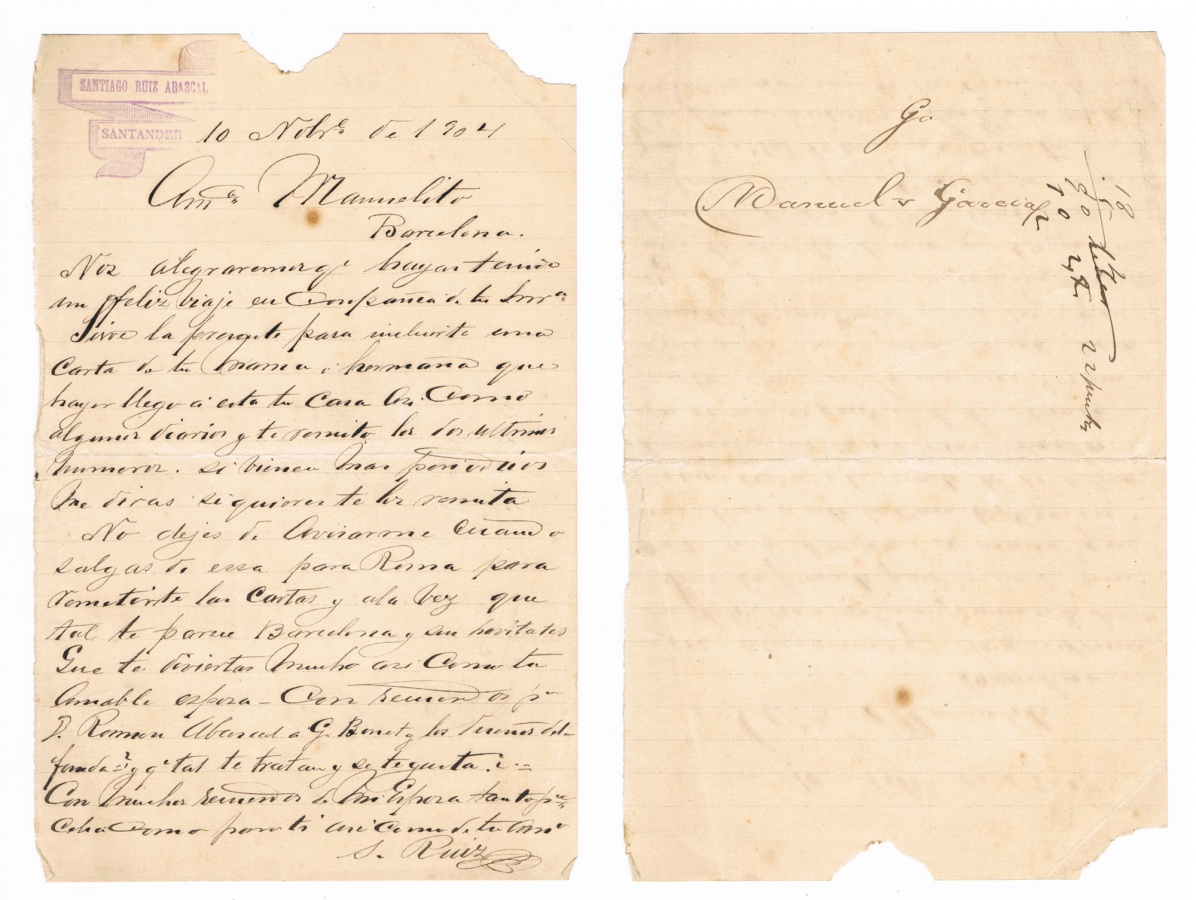 SANTIAGO RUIZ ABASCAL
SANTANDER
10 Nobre de 1904
Manuelito
Barcelona.
Nos alegraremos qe hayas tenido
un feliz viaje en Conpañia de tu
Sirve la presente para incluirte una
Carta de tu mama i hermana que
hayer llego a esta tu Casa Asi Como
algunos diarios y te remito los dos ultimos
numeros. si vienen mas periodicos
me diras si quieres te los remita
No dejes de Avisarme Cuando
salgas de essa para Roma para
remetirte las Cartas y ala Vez que
tal te parece Barcelona y sus
Que te diviertas mucho asi Como tu
Amable esposa - Con recuerdos pa
D. Roman Abascal a G. Bonet y los dueños del
fonda y qe tal te tratan y se te gusta
Con muchos recuerdos de mi Esposa tanto pra
Como para ti asi Como de tu Amo
S. Ruiz
Go
Manuel Garcia
18
22